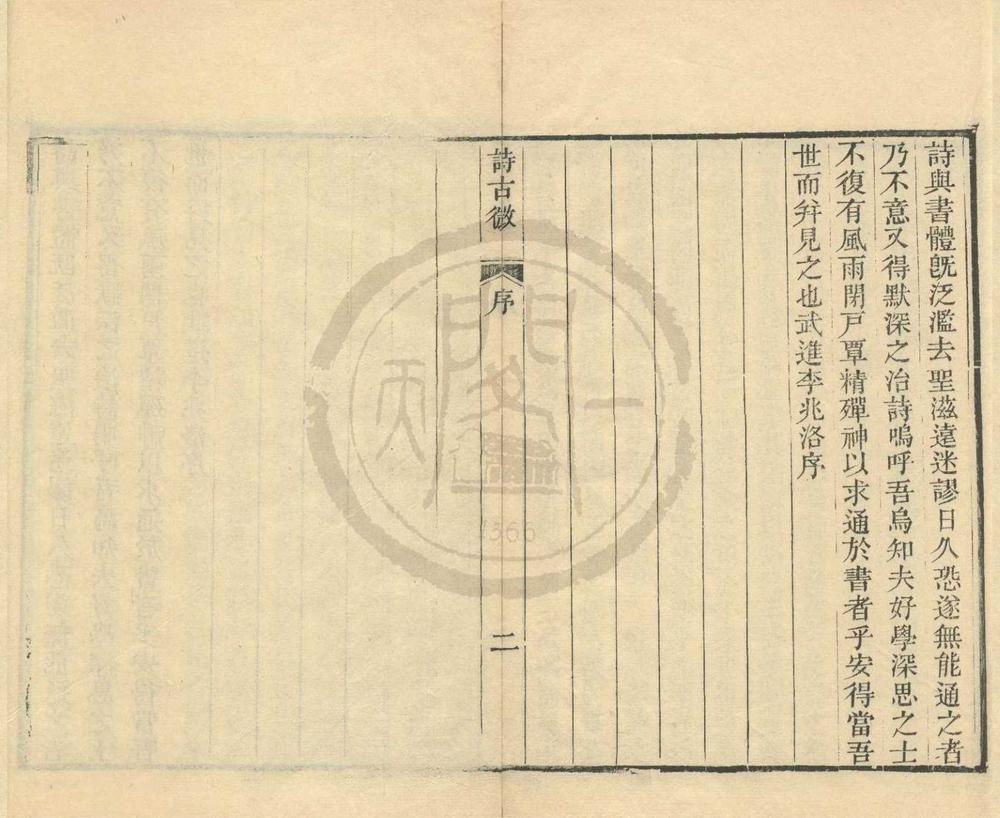 詩與書體旣泛濫去聖滋遠迷謬日久恐遂無能通之者
乃不意又得默深之治詩嗚呼吾烏知夫好學深思之士
不復有風雨閉戸覃精殫神以求通於書者乎安得當吾
世而幷見之也武進李兆洛序
詩古微
序
二
1366